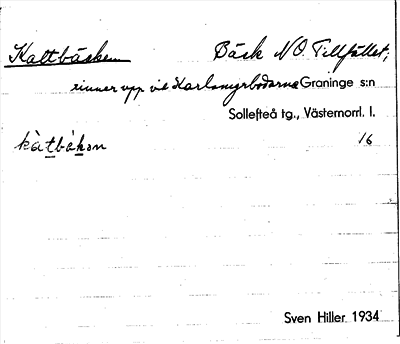 Kattbäcken Bäck NO Tillfället;
rinner upp vid Karlsmyrbodarna Graninge s:n
Sollefteå tg., Västernorrl. l.
16
Sven Hiller. 1934